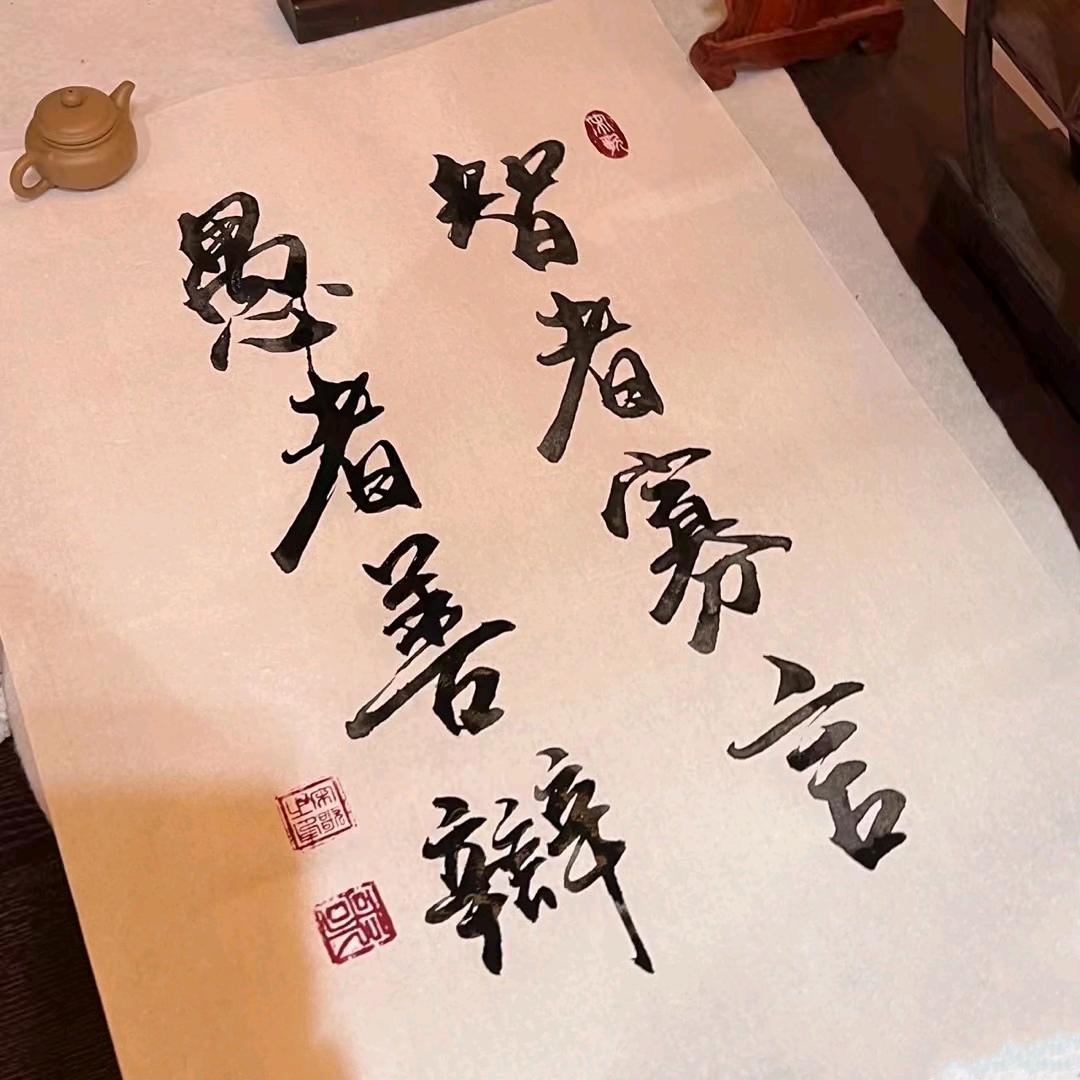 智者寡言
愚者善辯